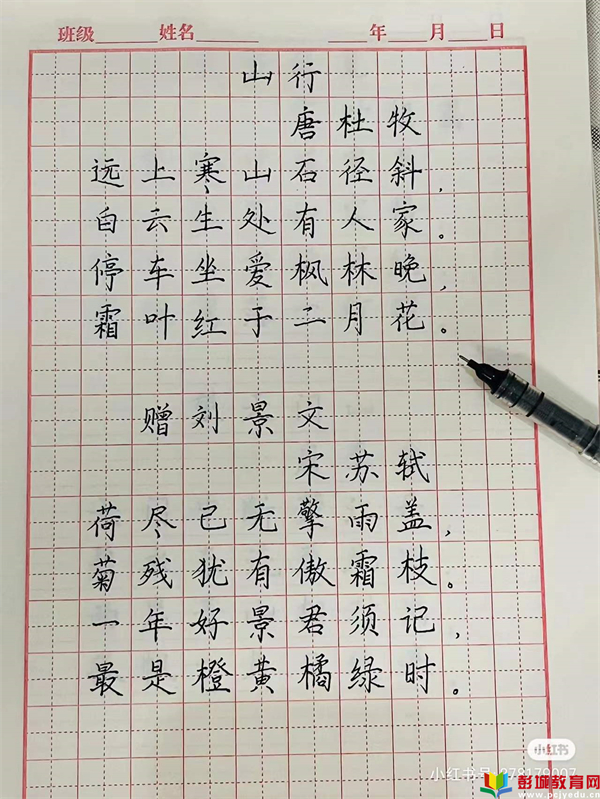 班级 姓名 年 月 日
山行
唐杜牧
远上寒山石径斜，
白云生处有人家。
停车坐爱枫林晚，
霜叶红于二月花。
赠刘景文
宋苏轼
荷尽已无擎雨盖，
菊残犹有傲霜枝。
一年好景君须记，
最是橙黄橘绿时。
小红书
小红书号
彭城教育网
www.pcjyedu.cn